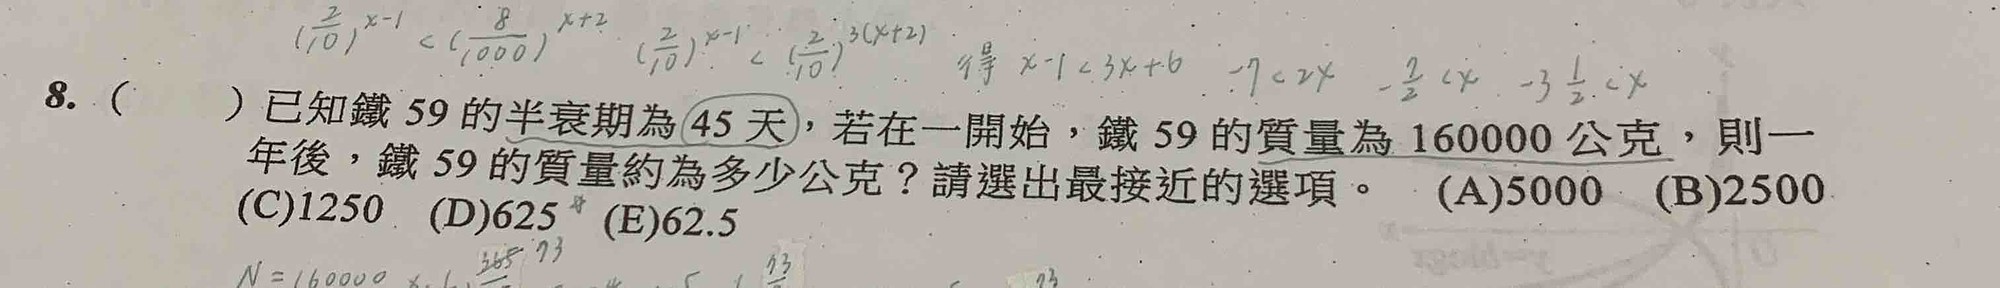 (2/10)^x-1 < (8/1000)^x+2 (2/10)^x-1 < (2/10)^3(x+2) 得 x-1<3x+6 -7<2x -7/2<x -3 1/2<x
8. ( )已知鐵 59 的半衰期為 45 天,若在一開始,鐵 59 的質量為 160000 公克,則一
年後,鐵 59 的質量約為多少公克?請選出最接近的選項。 (A)5000 (B)2500
(C)1250 (D)625 (E)62.5
N=160000 365 73 73 73